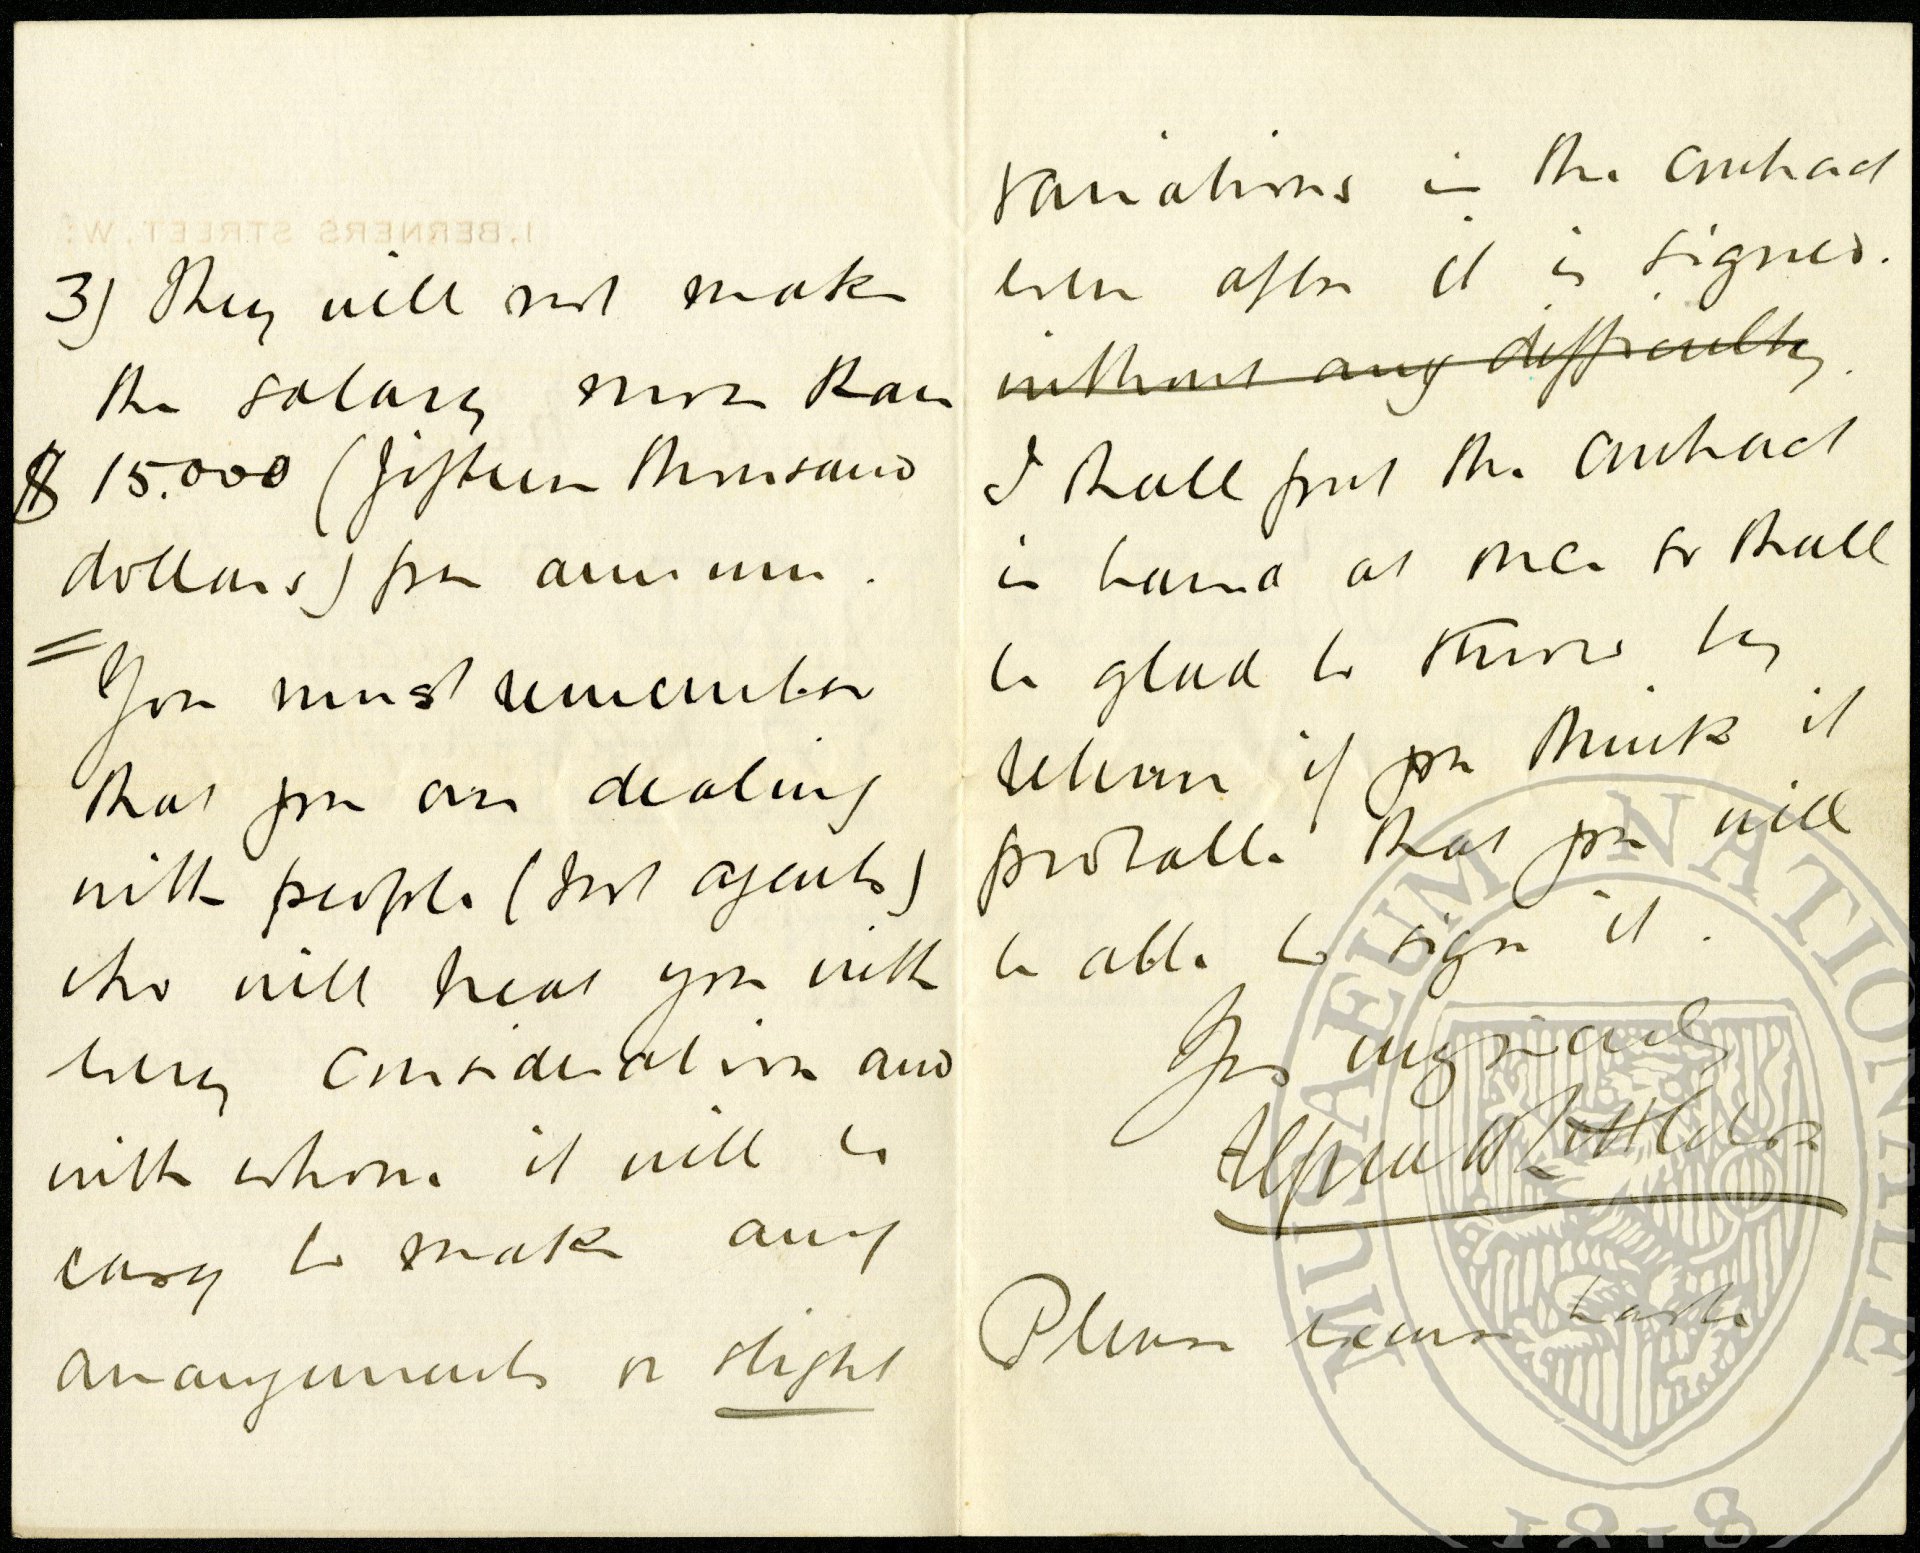 1, BERNERS STREET, W.
3) They will not make
the salary more than
$ 15.000 (fifteen thousand
dollars) per annum.
You must remember
that you are dealing
with people (not agents)
who will treat you with
every consideration and
with whom it will be
easy to make any
arrangements or slight
variations in the contract
even after it is signed.
without any difficulty.
I shall put the contract
in hand at once so shall
be glad to know by
return if you think it
probable that you will
be able to sign it.
Yrs very sincerely
Alfred
Please excuse haste
MUSAEUM NATIONALE
1818